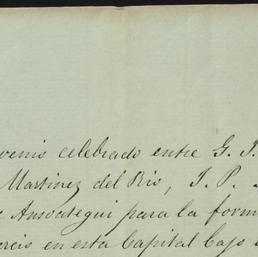 venio celebrado entre G. J.
Martinez del Rio, J. P.
Ansoategui para la form
ercio en esta Capital bajo